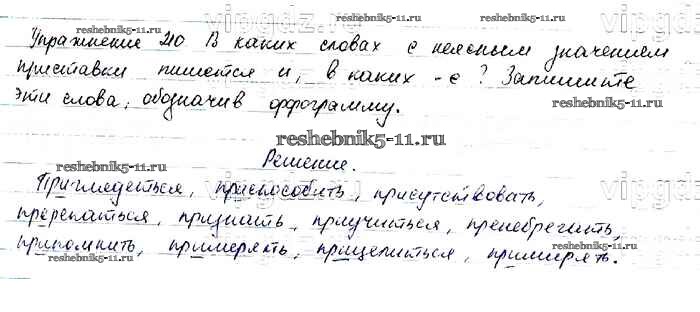 reshebnik5-11.ru
Упражнение 210 В каких словах с неясным значением
приставки пишется и, в каких -е? Запишите
reshebnik5-11.ru reshebnik5-11.ru
эти слова, обозначив орфограмму.
reshebnik5-11.ru
Решение.
reshebnik5-11.ru reshebnik5-11.ru
Приглядеться, приспособить, присутствовать,
пререкаться, признать, приучиться, пренебрегать,
припомнить, примерять, прицепиться, примирять.
reshebnik5-11.ru
reshebnik5-11.ru